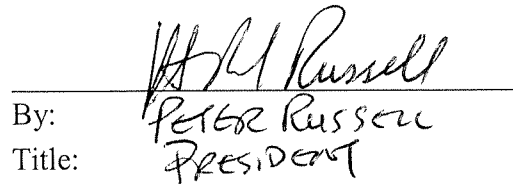 Russell
By: PETER RUSSELL
Title: PRESIDENT